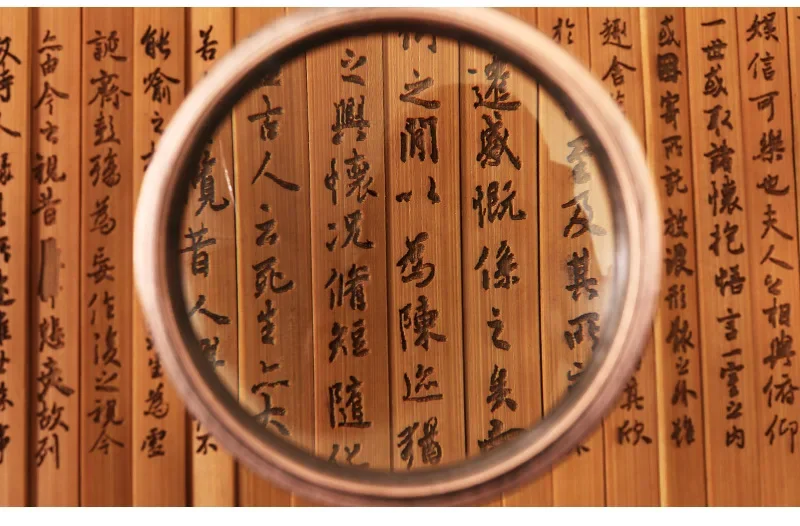 娱信可樂也夫人之相與俯仰
一世或取諸懷抱悟言一室之内
或因寄所託放浪形骸之外雖
趣舍萬其欣
於至及其所
遷感慨係之矣向
仰之間以為陳迹猶
之興懷況脩短隨化
古人云死生亦大
若覽昔人興不
能喻之生為虚
誕齊彭殤為妄作後之視今
亦由今之視昔悲夫故列
叙時人錄其所述雖世殊事